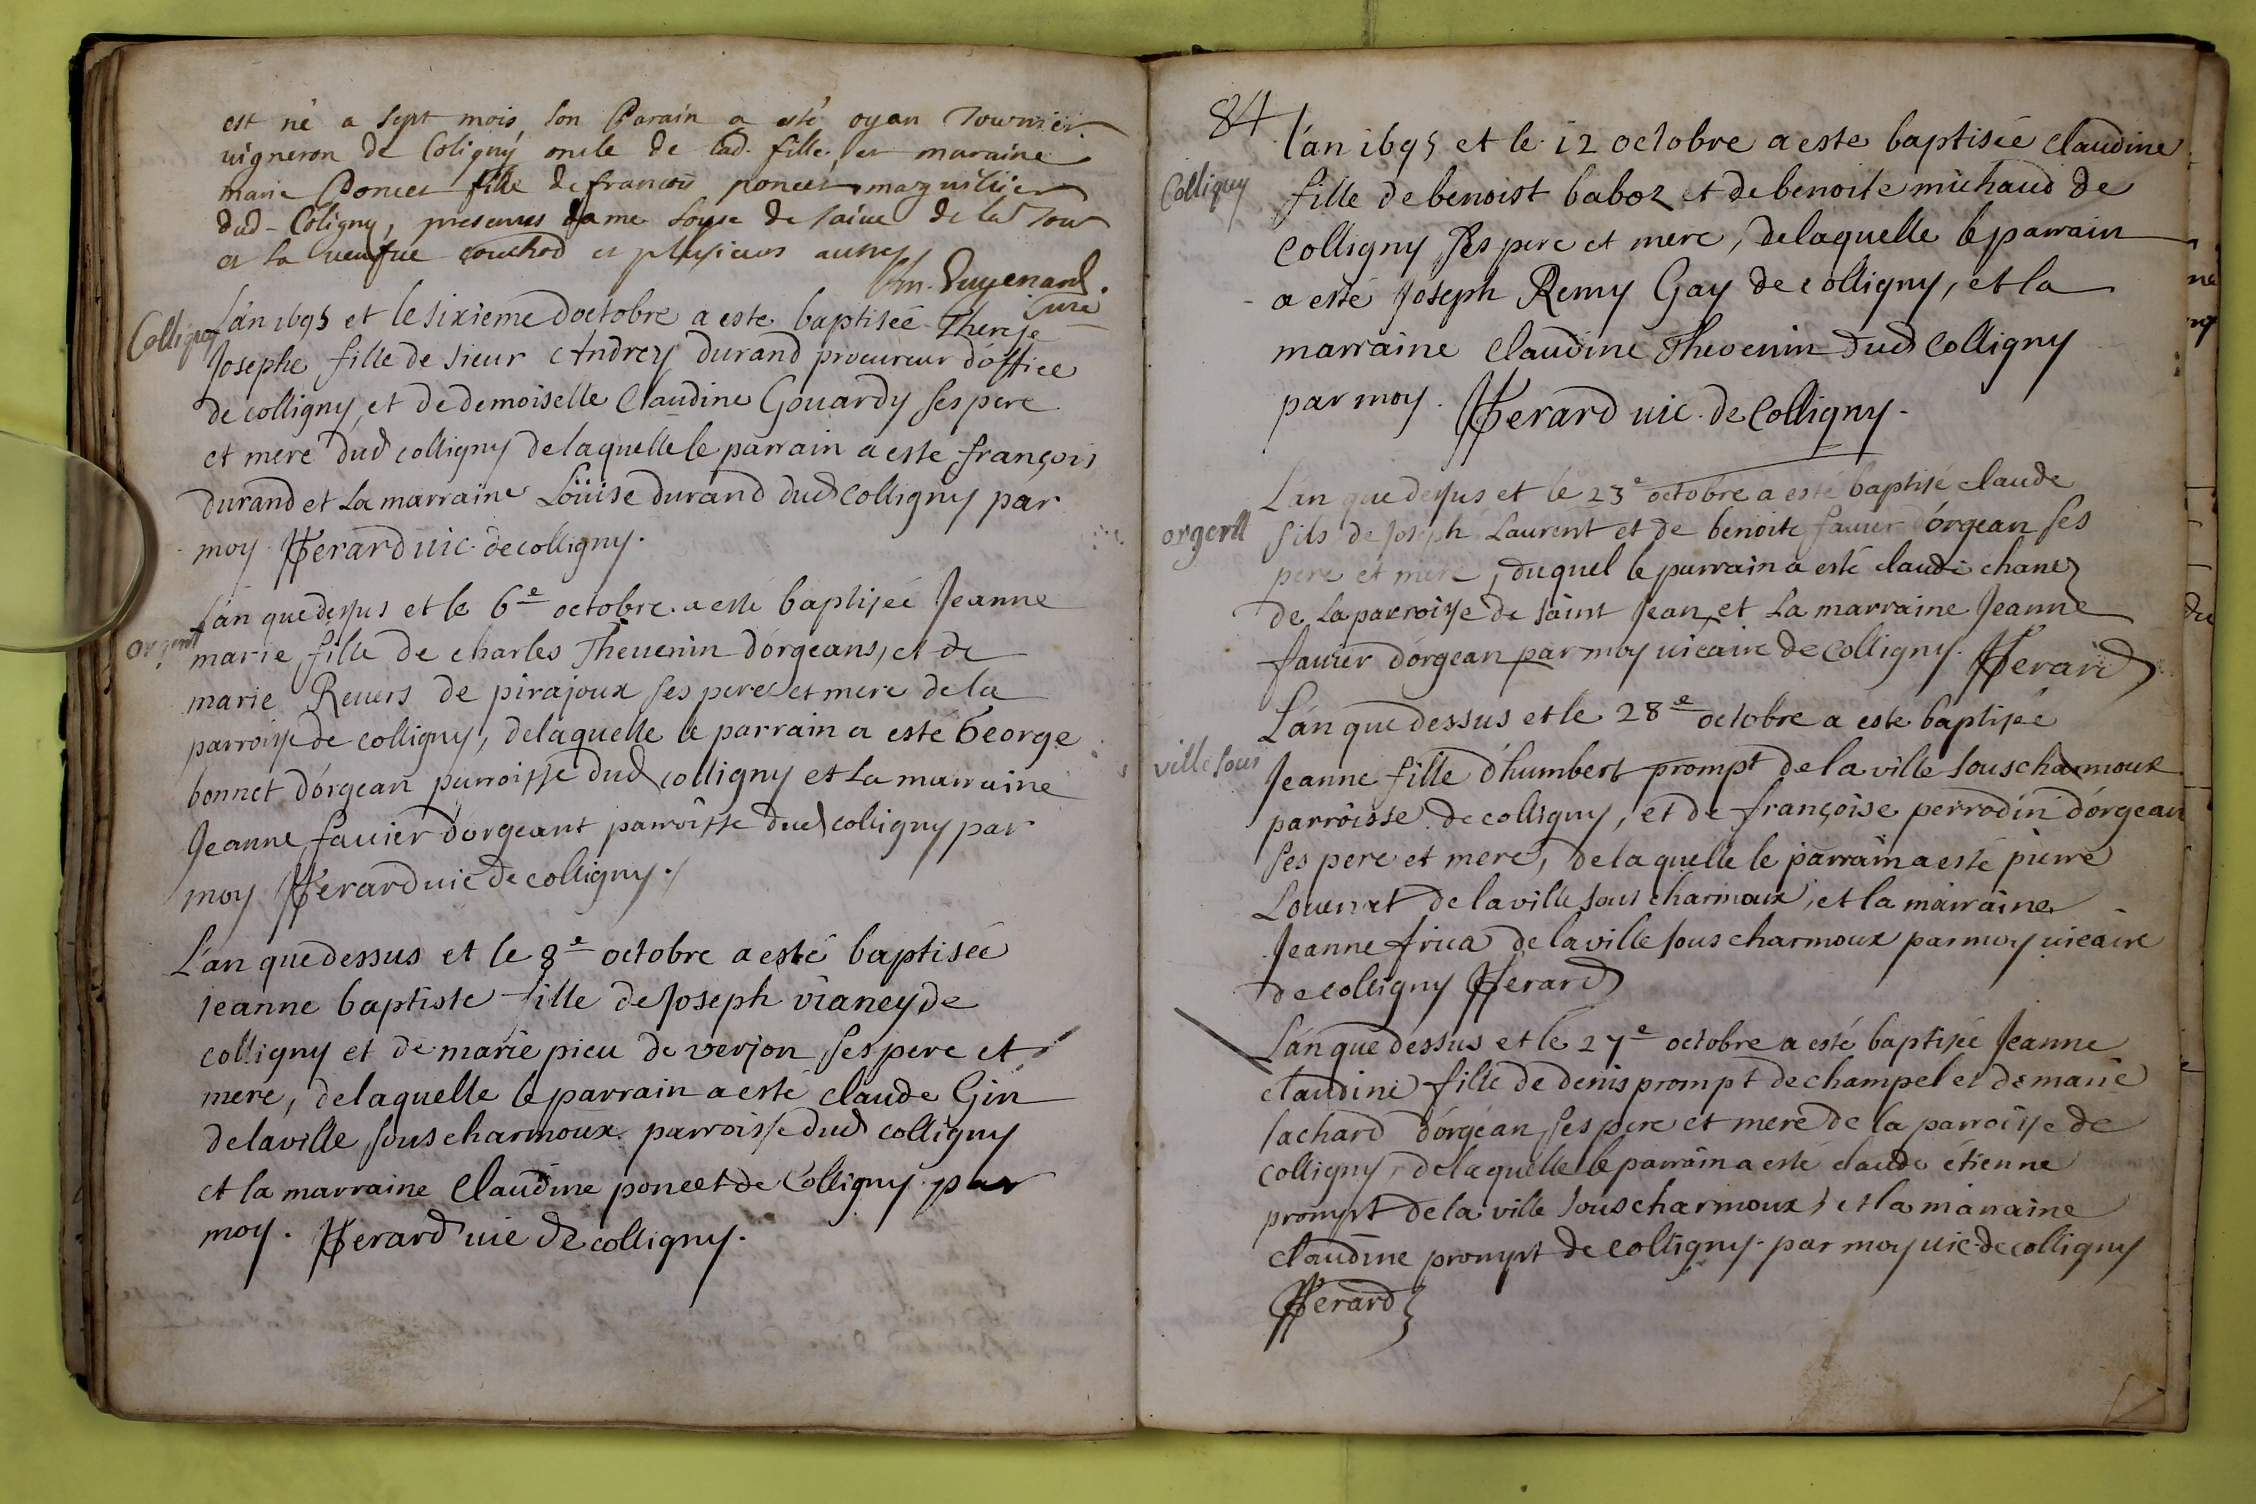 est né a sept mois son Parain a esté oyan Tournier
uigneron de Coligny oncle de lad. fille et maraine
marie Poncet fille de francois poncet marguillier
dud. Coligny, presentes dame Louise de de la Tour
et la ueufue et plusieurs autres
Puyenard
Curé
Colligny
L'an 1695 et le sixieme d'octobre a este baptisée Therese
Josephe fille de sieur Andrey durand procureur d'office
de colligny et de demoiselle Claudine Gouardy ses pere
et mere dud colligny de laquelle le parrain a este françois
durand et la marraine Loüise durand dud colligny par
moy HJerard uic. de colligny.
orgent
L'an que dessus et le 6e octobre a esté baptisée Jeanne
marie fille de charles Theuenin d'orgeans, et de
marie Reuers de pirajoux ses pere et mere de la
parroisse de colligny, de laquelle le parrain a esté George
bonnet d'orgean parroisse dud colligny et la marraine
Jeanne fauier d'orgeant parroisse dud colligny par
moy HJerard uic de colligny.
L'an que dessus et le 8e octobre a esté baptisée
jeanne baptiste fille de Joseph vianey de
colligny et de marie picu de verjon ses pere et
mere, de laquelle le parrain a esté claude Gin
de la ville sous charmoux parroisse dud colligny
et la marraine Claudine poncet de Colligny par
moy. HJerard uic de colligny.
84
Colligny
l'an 1695 et le 12 octobre a este baptisée claudine
fille de benoist baboz et de benoite michaud de
colligny ses pere et mere, de laquelle le parrain
a esté Joseph Remy Gay de colligny, et la
marraine claudine Thevenin dud colligny
par moy. HJerard uic. de Colligny.
orgent
L'an que dessus et le 23e octobre a esté baptisé claude
fils de Joseph Laurent et de benoite fauier d'orgean ses
pere et mere, duquel le parrain a esté claude chanez
de la parroisse de saint Jean et la marraine Jeanne
fauier d'orgean par moy uicaire de colligny. HJerard
ville sous
L'an que dessus et le 28e octobre a este baptisée
Jeanne fille d'humbert prompt de la ville sous charmoux
parroisse de colligny, et de françoise perrodin d'orgean
ses pere et mere, de laquelle le parrain a esté pierre
Louenxt de la ville sous charmoux, et la marraine
Jeanne frica de la ville sous charmoux par moy uicaire
de colligny HJerard
L'an que dessus et le 27e octobre a esté baptisée Jeanne
claudine fille de denis prompt de champel et de marie
sachard d'orgean ses pere et mere de la parroisse de
colligny, de laquelle le parrain a esté claude étienne
prompt de la ville sous charmoux, et la marraine
claudine prompt de colligny. par moy uic. de colligny
HJerard